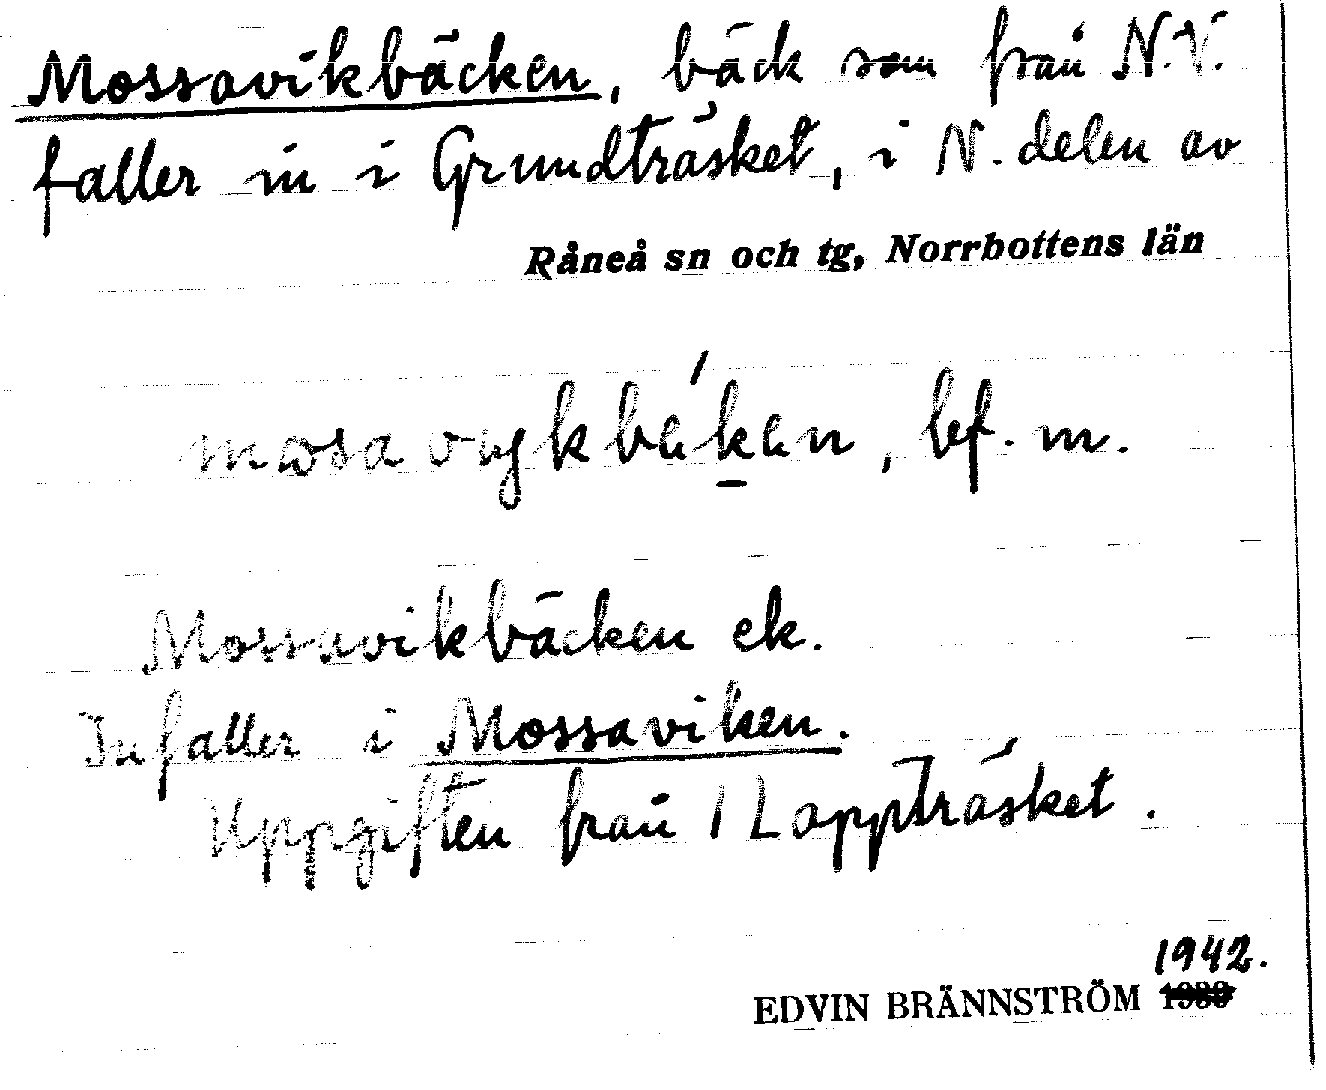 Mossavikbäcken, bäck som från N.V.
faller in i Grundträsket, i N. delen av
Råneå sn och tg, Norrbottens län
bf. m.
Mossavikbäcken ek.
Infaller i Mossaviken.
Uppgiften från 1 Lappträsket.
1942.
EDVIN BRÄNNSTRÖM